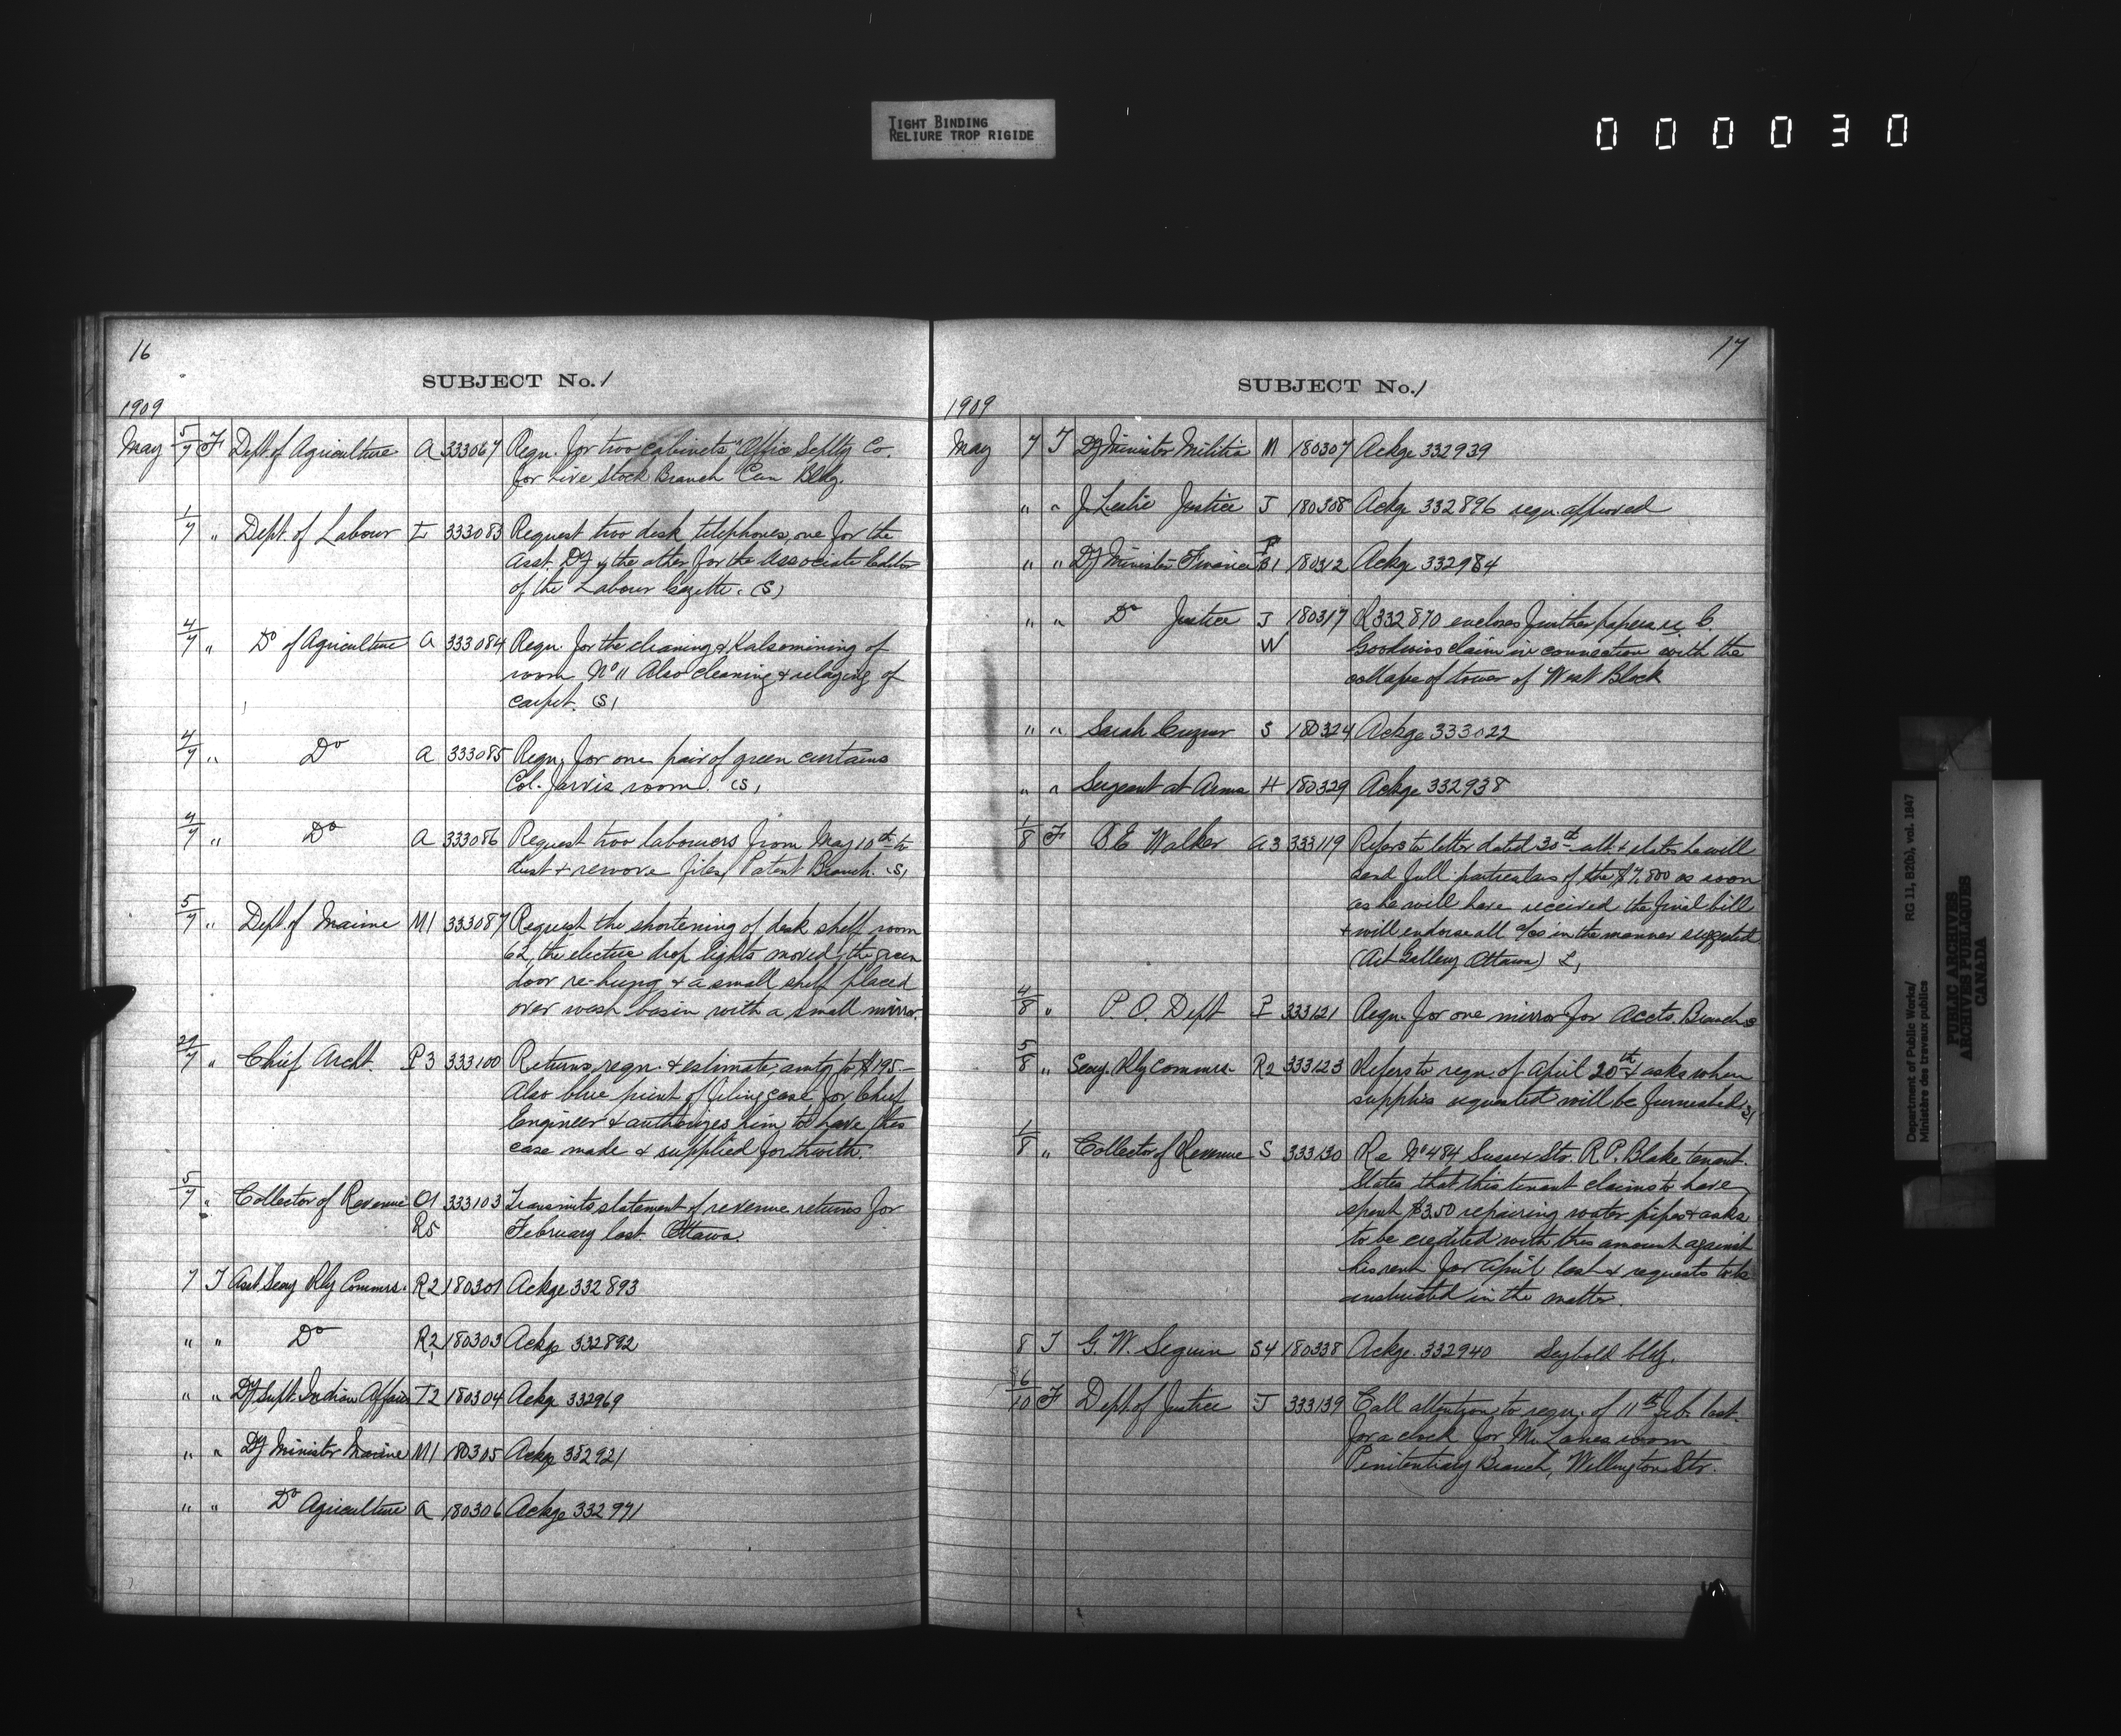 TIGHT BINDING
RELIURE TROP RIGIDE
000030
16
SUBJECT No. 1
1909
May 5/7 F Dept. of Agriculture A 333067 Reqn. for two cabinets, Office Splty Co.
for Live Stock Branch Can Bldg.
1/7 " Dept. of Labour L 333083 Request two desk telephones, one for the
Asst. Dy & the other for the Associate Editor
of the Labour Gazette. (S)
4/7 " Do of Agriculture A 333084 Reqn. for the cleaning & Kalsomining of
room No 11 Also cleaning & relaying of
carpet. (S)
4/7 " Do A 333085 Reqn. for one pair of green curtains
Col. Jarvis room. (S)
4/7 " Do A 333086 Request two labourers from May 10th to
dust & remove files, Patent Branch. (S)
5/7 " Dept. of Marine M1 333087 Request the shortening of desk shelf room
62, the electric drop lights moved, the green
door re-hung & a small shelf placed
over wash basin with a small mirror.
Chief Archt. P3 333100 Returns reqn. & estimate amtg to $195.—
Also blue print of filing case for Chief
Engineer & authorizes him to have this
case made & supplied forthwith.
5/7 " Collector of Revenue O1 333103 Transmits statement of revenue returns for
R5 February last. Ottawa.
7 T Asst Secy Rly Commrs. R2 180301 Ackge 332893
" " Do R2 180303 Ackge 332892
" " Dy Supt. Indian Affairs I2 180304 Ackge 332969
" " Dy Minister Marine M1 180305 Ackge 332921
" " Do Agriculture A 180306 Ackge 332971
17
SUBJECT No. 1
1909
May 7 T Dy Minister Militia M 180307 Ackge 332939
" " J. Leslie Justice J 180308 Ackge 332896 reqn. approved
" " Dy Minister Finance F B1 180312 Ackge 332984
" " Do Justice J 180317 R 332870 encloses further papers re C.
W Goodwins claim in connection with the
collapse of tower of West Block
" " Sarah S 180324 Ackge 333022
" " Sergeant at Arms H 180329 Ackge 332938
1/8 F B E Walker A3 333119 Refers to letter dated 30th ult. & states he will
send full particulars of the $7,500 as soon
as he will have received the final bill
& will endorse all a/cs in the manner suggested
(Art Gallery Ottawa) L,
4/8 " P. O. Dept P 333121 Reqn. for one mirror for Accts. Branch S
5/8 " Secy. Rly Commrs. R2 333123 Refers to reqn. of April 20th & asks when
supplies requested will be furnished S,
1/8 " Collector of Revenue S 333130 Re No 484 Sussex Str. R. P. Blake tenant.
States that this tenant claims to have
spent $3.50 repairing water pipes & asks
to be credited with this amount against
his rent for April last & requests to be
instructed in the matter.
8 T G. W. Seguin S4 180338 Ackge. 332940 Seybold bldg.
6/10 F Dept of Justice J 333139 Call attention to reqn. of 11th Feb. last.
for a clock for Mr. Lanes room
Penitentiary Branch, Wellington Str.
Department of Public Works/
Ministère des travaux publics
RG 11, B2(b), vol. 1847
PUBLIC ARCHIVES
ARCHIVES PUBLIQUES
CANADA